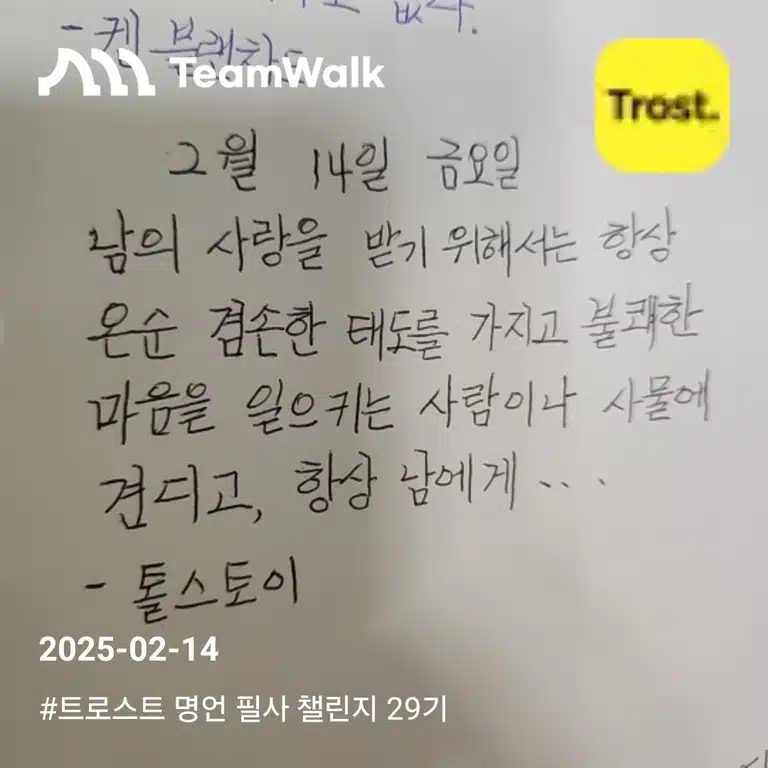 없다.
- 켄 블랜차드
TeamWalk
Trost.
2월 14일 금요일
남의 사랑을 받기 위해서는 항상
온순 겸손한 태도를 가지고 불쾌한
마음을 일으키는 사람이나 사물에
견디고, 항상 남에게 ...
- 톨스토이
2025-02-14
#트로스트 명언 필사 챌린지 29기